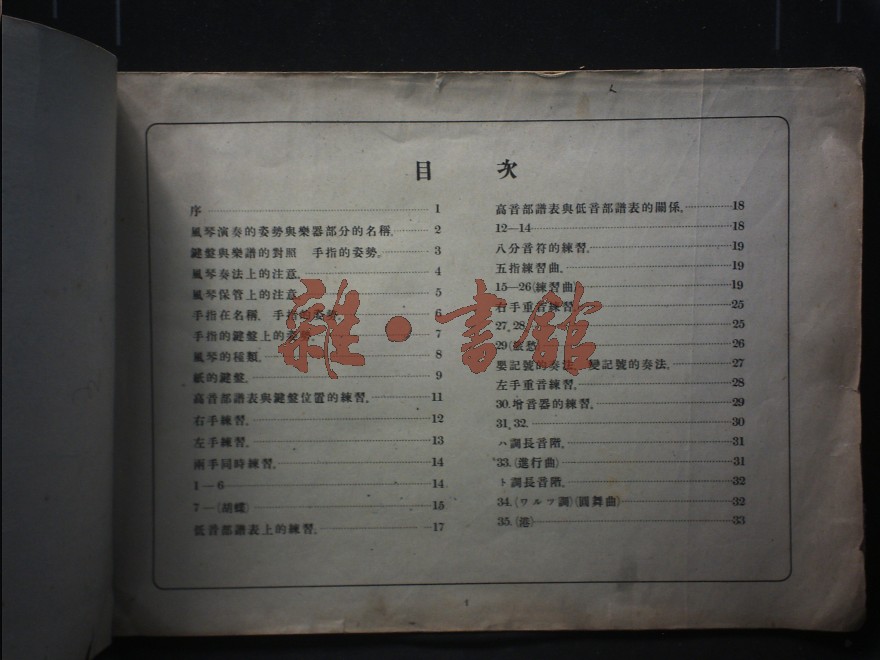 目 次
序 1
風琴演奏的姿勢與樂器部分的名稱. 2
鍵盤與樂譜的對照 手指的姿勢. 3
風琴奏法上的注意. 4
風琴保管上的注意. 5
手指在名稱. 手指的姿勢. 6
手指的鍵盤上的姿勢 7
風琴的種類. 8
紙的鍵盤. 9
高音部譜表與鍵盤位置的練習. 11
右手練習. 12
左手練習. 13
兩手同時練習. 14
1—6 14
7—(胡蝶) 15
低音部譜表上的練習. 17
高音部譜表與低音部譜表的關係. 18
12—14 18
八分音符的練習. 19
五指練習曲. 19
15—26(練習曲) 19
右手重音練習. 25
27, 28 25
29( 26
嬰記號的奏法. 變記號的奏法. 27
左手重音練習. 28
30.增音器的練習. 29
31, 32. 30
ハ調長音階. 31
33.(進行曲) 31
ト調長音階. 32
34.(ワルツ調)(圓舞曲) 32
35.(港) 33
1
雜·書館